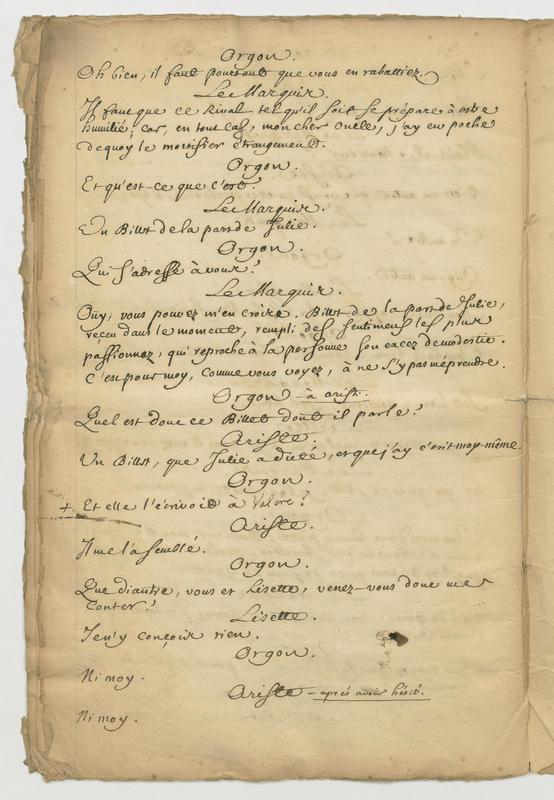 Orgon.
Oh bien, il faut pourtant que vous en rabattiez.
Le Marquis.
Il faut que ce Rival tel qu'il soit se prépare à estre
humilié; car, en tout cas, mon cher oncle, j'ay en poche
dequoy le mortifier étrangement.
Orgon.
Et qu'est-ce que c'est.
Le Marquis.
Un Billet de la part de Julie.
Orgon.
Qui s'adresse à vous?
Le Marquis.
Oüy, vous pouvez m'en croire. Billet de la part de Julie,
receu dans le moment, rempli des sentimens les plus
passionnez, qui reproche à la personne son excez de modestie.
C'est pour moy, comme vous voyez, à ne s'y pas méprendre.
Orgon - à arist.
Quel est donc ce Billet dont il parle?
Ariste.
Un Billet, que Julie a dicté, et que j'ay écrit moy-même.
Orgon.
+ Et elle l'écrivoit à Valere?
Ariste.
Il me l'a semblé.
Orgon.
Que diantre, vous et Lisette, venez-vous donc me
conter?
Lisette.
Je n'y conçois rien.
Orgon.
Ni moy.
Ariste - après avoir hésité.
Ni moy.